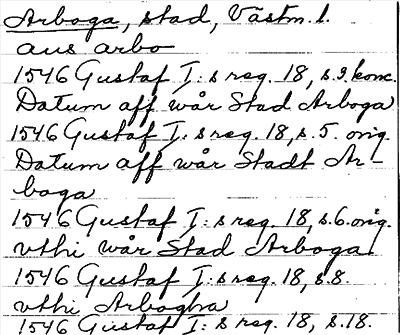 Arboga, stad, Västm. l.
aus arbo
1546 Gustaf I:s reg. 18, s. 3. konc.
Datum aff wår Stad Arboga
1546 Gustaf I:s reg. 18, s. 5. orig.
Datum aff wår Stadt Ar-
boga
1546 Gustaf I:s reg. 18, s. 6. orig.
vthi wår Stad Arboga.
1546 Gustaf I:s reg. 18, s. 8.
vthi Arbogha
1546 Gustaf I:s reg. 18, s. 18.